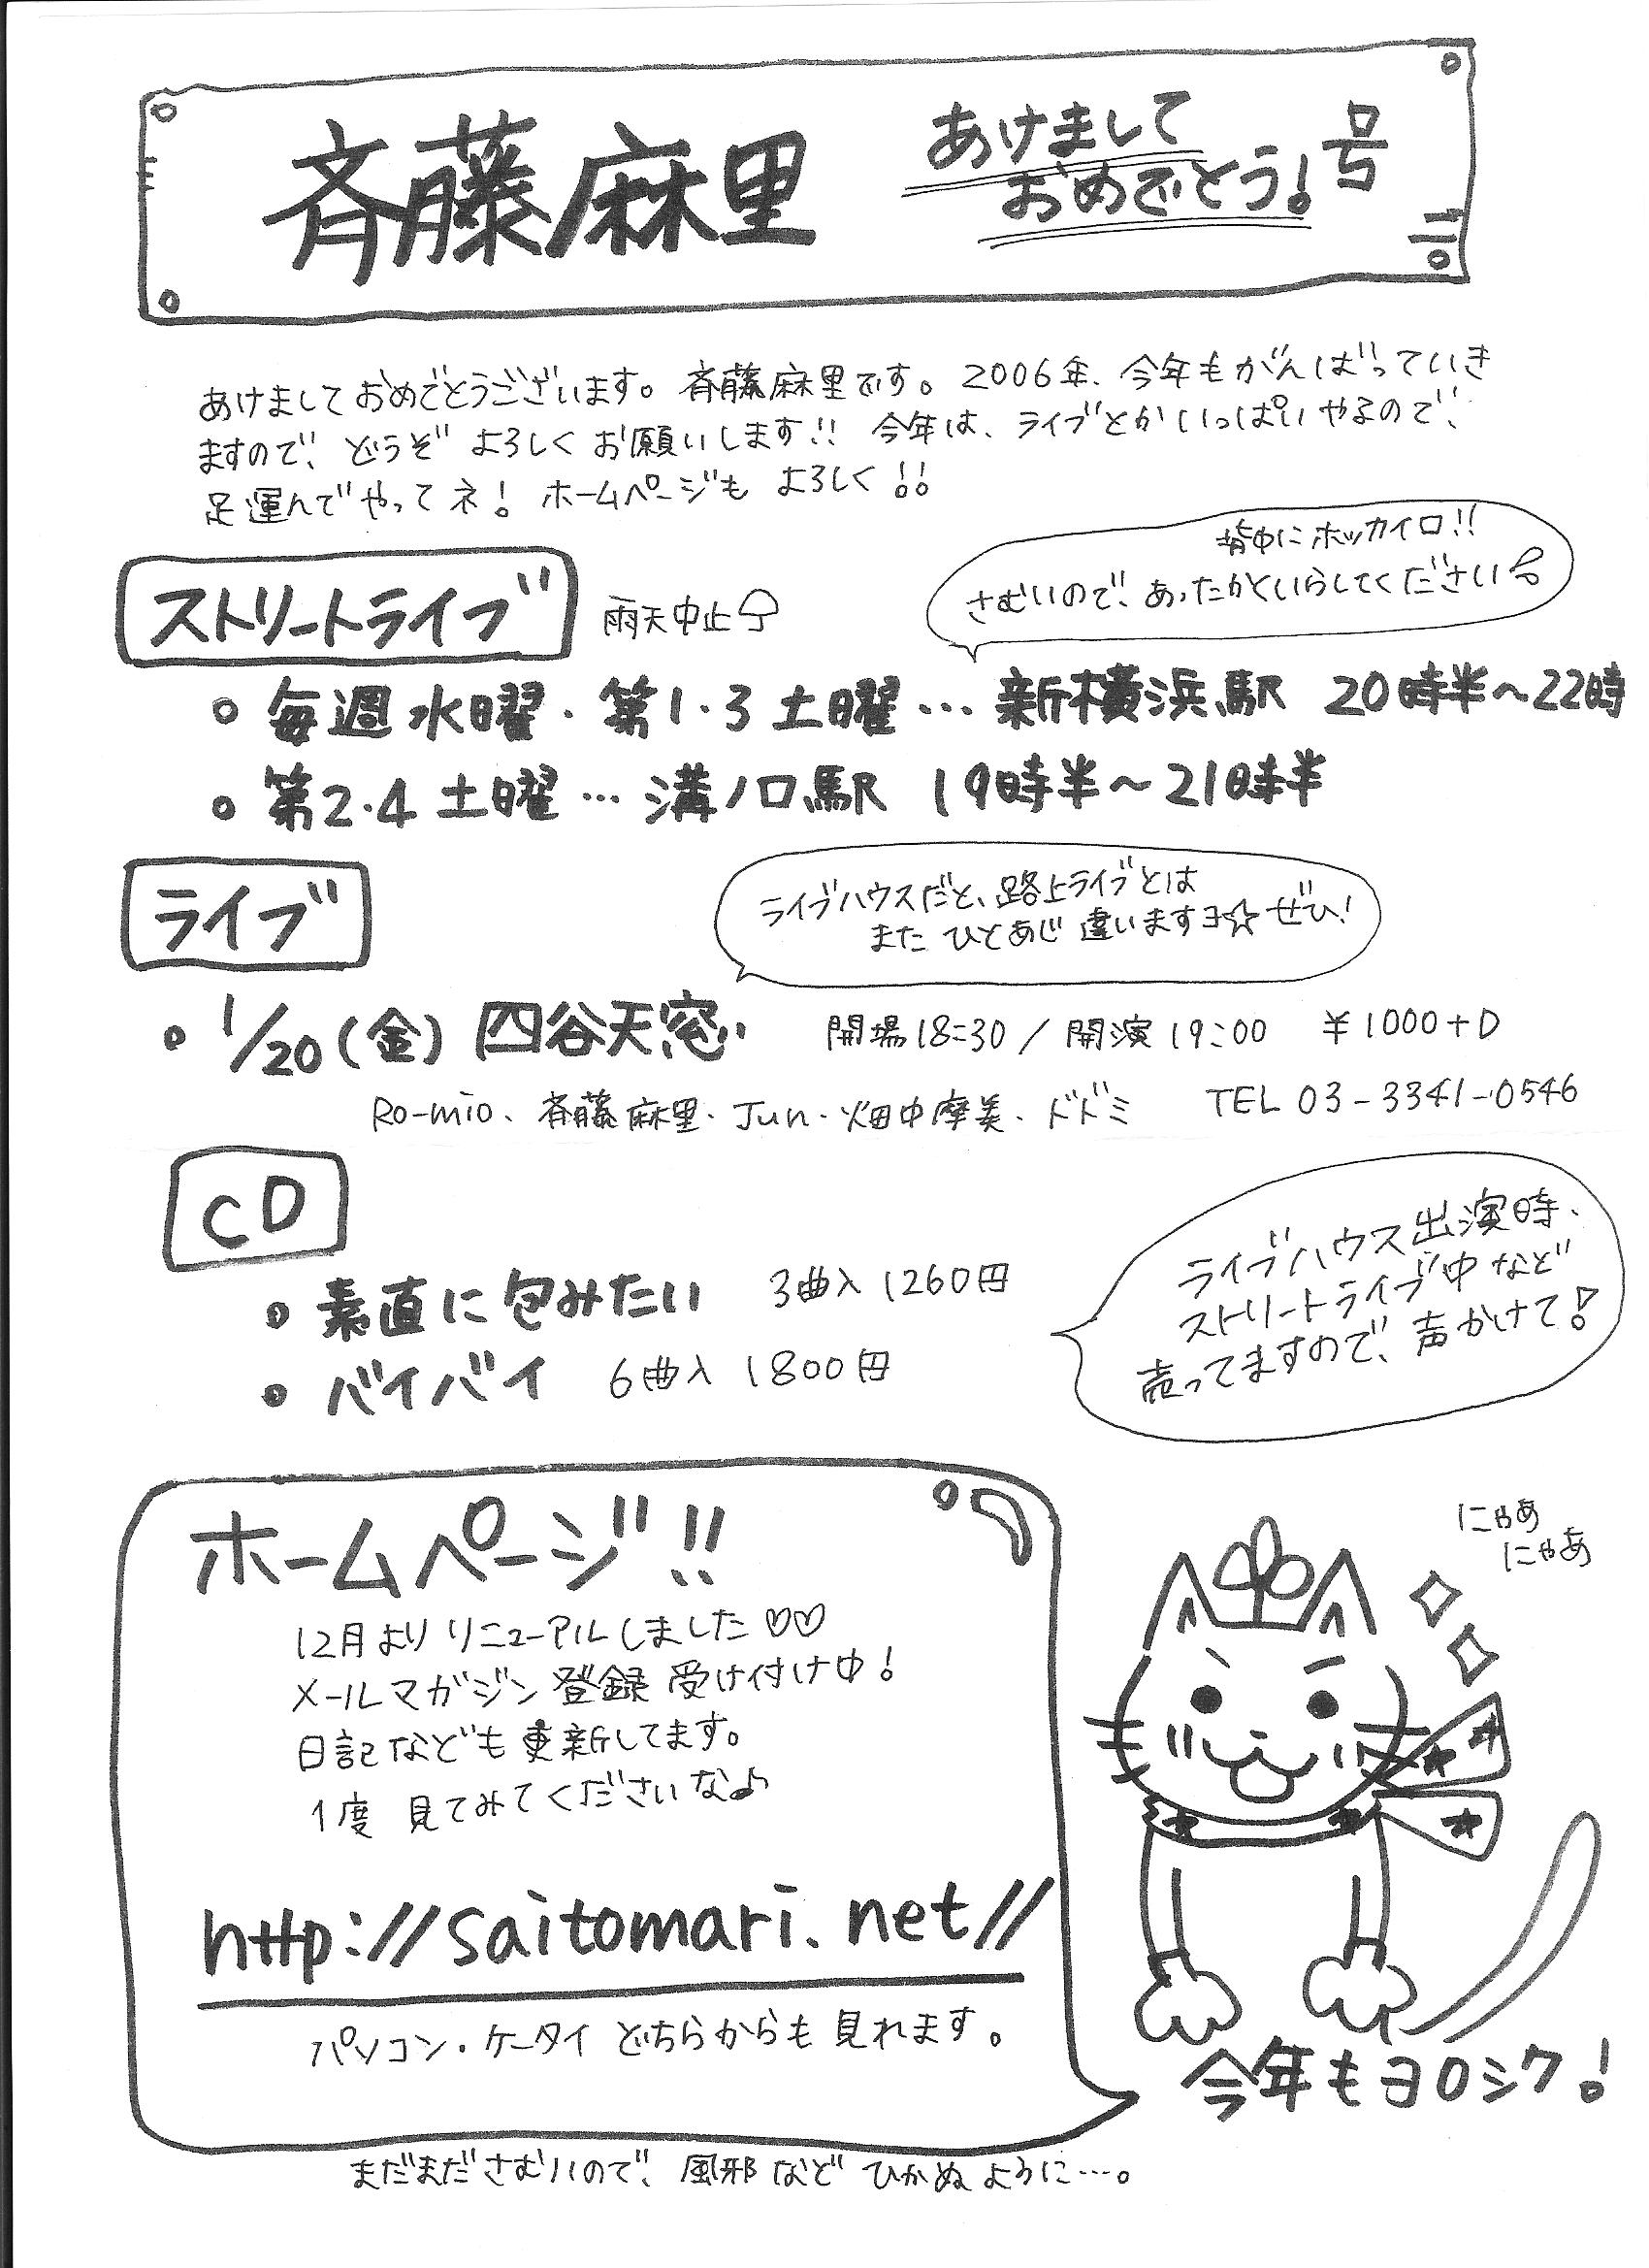 斉藤麻里 あけまして
おめでとう! 号
あけましておめでとうございます。斉藤麻里です。2006年、今年もがんばっていき
ますので、どうぞ よろしく お願いします!! 今年は、ライブとかいっぱいやるので、
足運んでやってネ! ホームページも よろしく!!
背中にホッカイロ!!
さむいので、あったかくいらしてください
ストリートライブ 雨天中止
毎週水曜・第1・3土曜…新横浜駅 20時半〜22時
第2・4土曜…溝ノ口駅 19時半〜21時半
ライブ
ライブハウスだと、路上ライブとは
また ひとあじ 違いますヨ☆ ぜひ!
1/20(金) 四谷天窓 開場18:30 / 開演19:00 ¥1000+D
Ro-mio、斉藤麻里・Jun・畑中摩美・ドドミ TEL 03-3341-0546
CD
素直に包みたい 3曲入 1260円
バイバイ 6曲入 1800円
ライブハウス出演時、
ストリートライブ中など
売ってますので、声かけて!
ホームページ!!
12月より リニューアルしました♡♡
メールマガジン 登録 受け付け中!
日記なども更新してます。
1度 見てみてくださいな♪
http://saitomari.net//
パソコン・ケータイ どちらからも 見れます。
にゃあ
にゃあ
今年もヨロシク!
まだまださむいので、風邪など ひかぬように…。